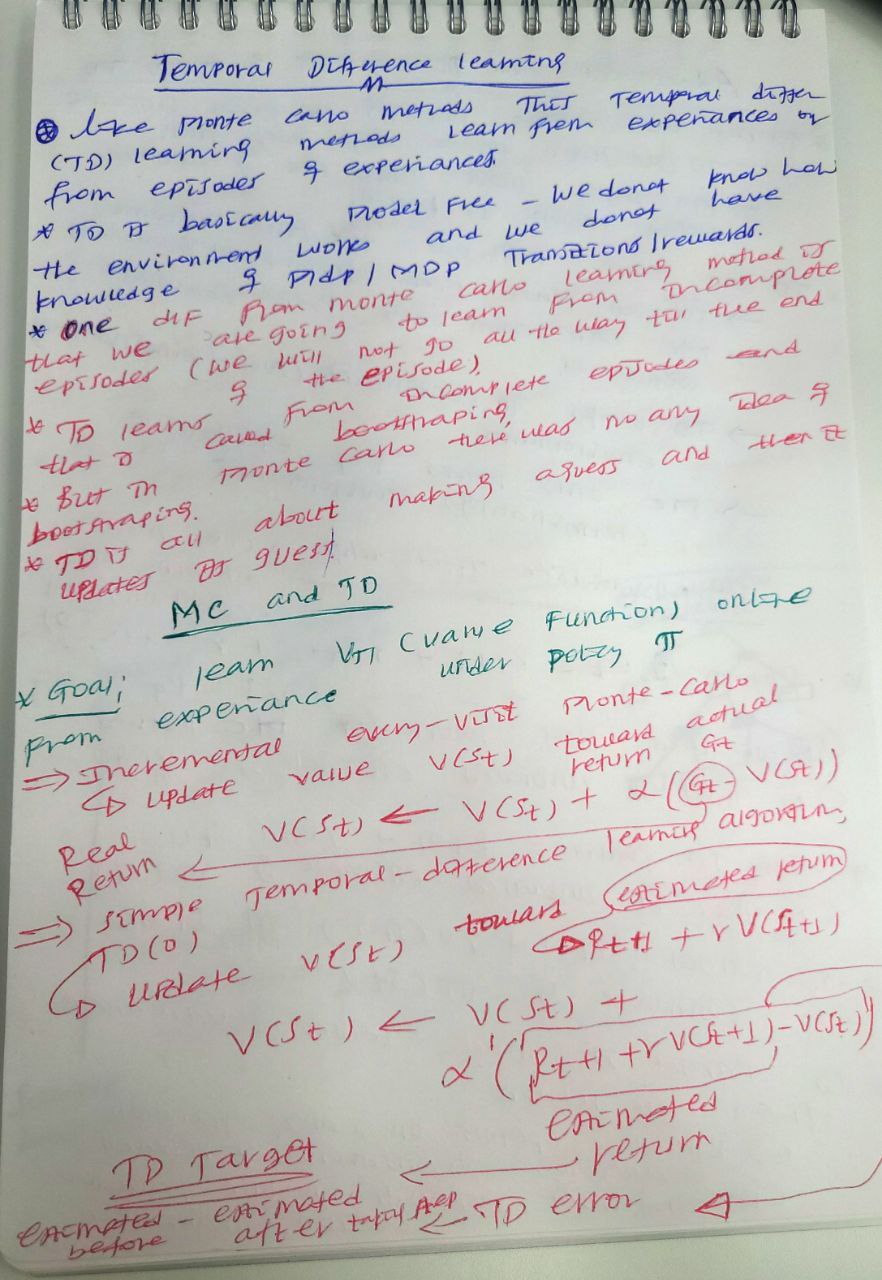 Temporal Difference learning
* like Monte Carlo methods This Temporal differ
(TD) learning methods learn from experiances or
from episodes of experiances.
* TD is basically Model Free - we donot know how
the environment works and we donot have
knowledge of MDP / MDP Transitions/rewards.
* One dif from monte carlo learning method is
that we are going to learn from incomplete
episodes (we will not go all the way till the end
of the episode).
* TD learns from incomplete episodes and
that is called bootstraping,
* But in Monte Carlo there was no any idea of
bootstraping.
* TD is all about making a guess and then it
updates its guess.
MC and TD
* Goal; learn Vπ (value Function) online
From experiance under policy π
⇒ Incremental every-visit Monte-Carlo
↳ update value V(St) toward actual
return Gt
V(St) ← V(St) + α(Gt - V(St))
Real
Return
⇒ simple Temporal-difference learning algorithm,
TD(0)
↳ update V(St) toward estimated return
Rt+1 + γV(St+1)
V(St) ← V(St) +
α(Rt+1 + γV(St+1) - V(St))
estimated
return
TD Target
← TD error
estimated - estimated
before after